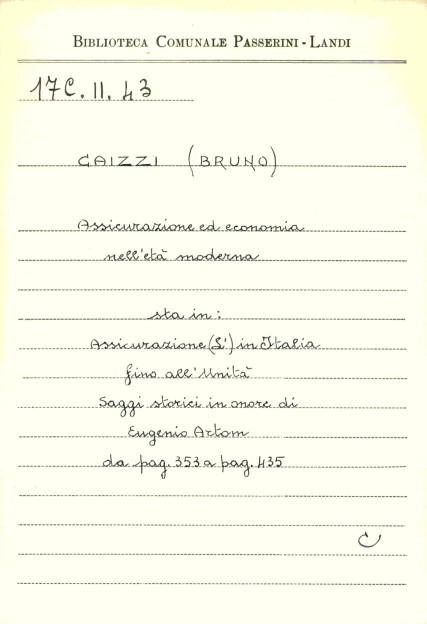 BIBLIOTECA COMUNALE PASSERINI - LANDI
17C. II. 43
CAIZZI (BRUNO)
Assicurazione ed economia
nell'età moderna
sta in:
Assicurazione (L') in Italia
fino all'Unità
Saggi storici in onore di
Eugenio Artom
da pag. 353 a pag. 435
C